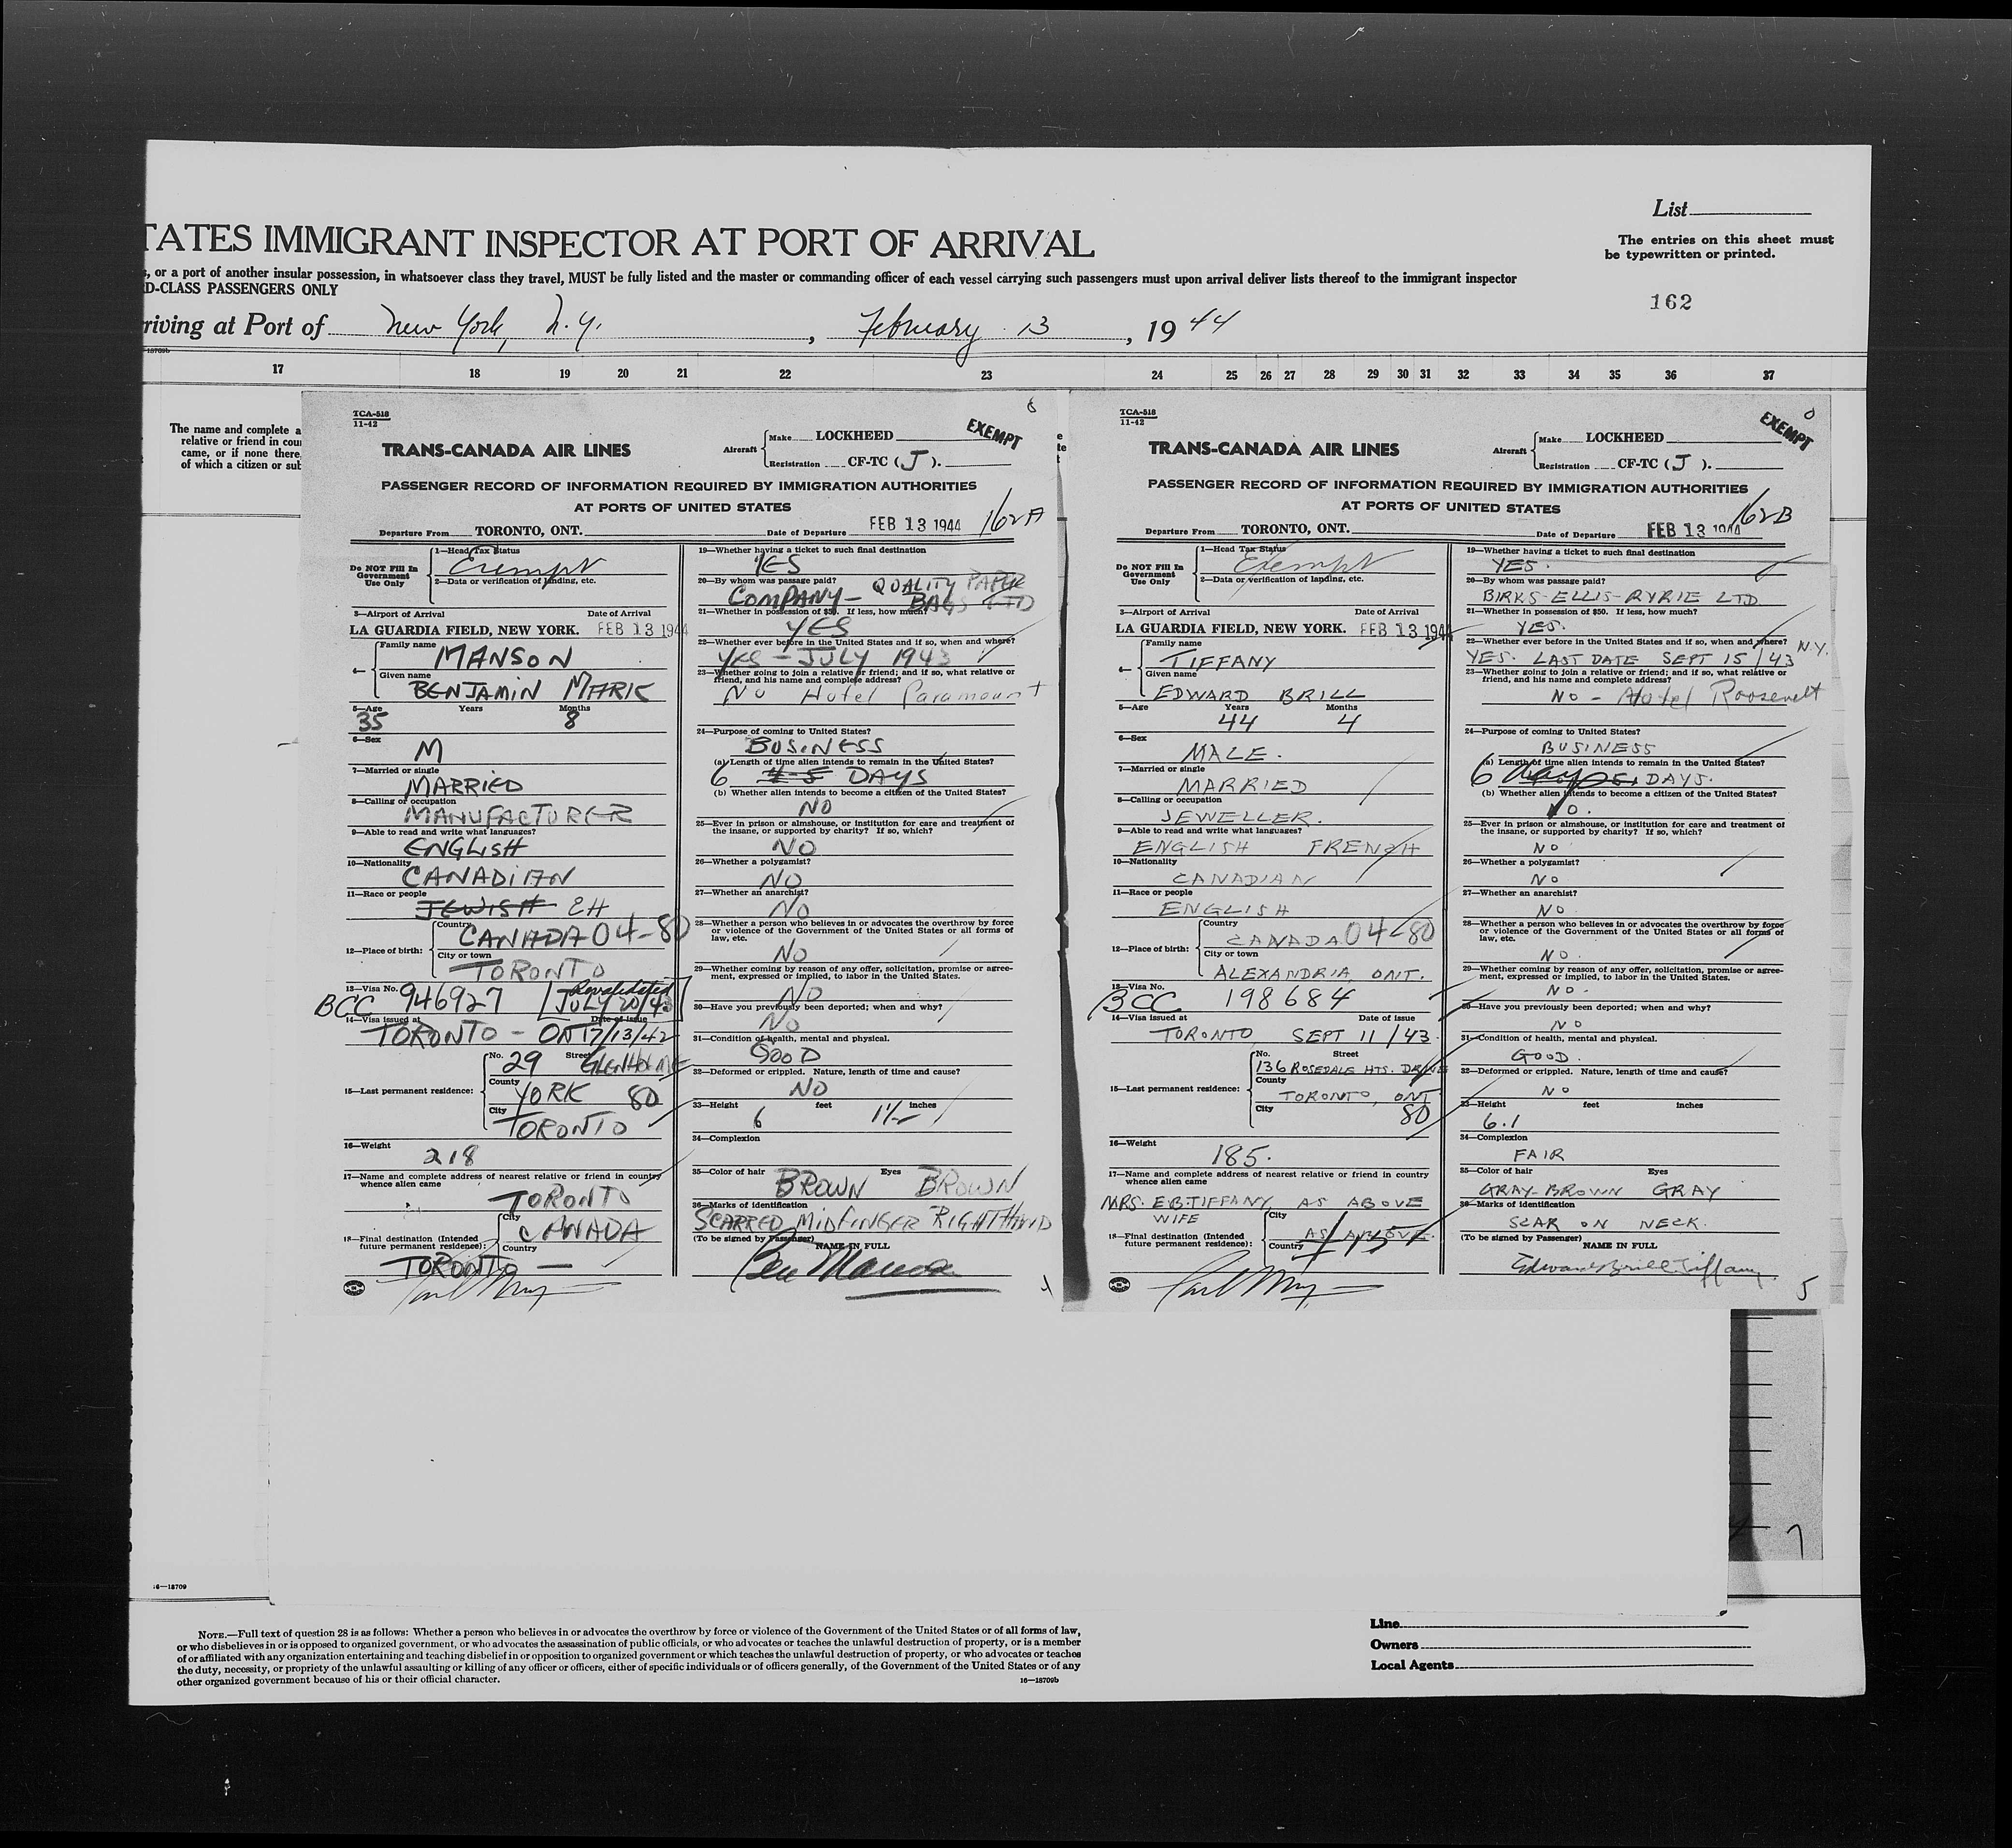 List
TATES IMMIGRANT INSPECTOR AT PORT OF ARRIVAL
The entries on this sheet must
be typewritten or printed.
s, or a port of another insular possession, in whatsoever class they travel, MUST be fully listed and the master or commanding officer of each vessel carrying such passengers must upon arrival deliver lists thereof to the immigrant inspector
D-CLASS PASSENGERS ONLY
162
riving at Port of New York, N.Y. , February 13 , 19 44
17 18 19 20 21 22 23 24 25 26 27 28 29 30 31 32 33 34 35 36 37
The name and complete a
relative or friend in cou
came, or if none there,
of which a citizen or sub
TCA-518
11-42
TRANS-CANADA AIR LINES
Aircraft
Make LOCKHEED
Registration CF-TC ( J ).
EXEMPT
PASSENGER RECORD OF INFORMATION REQUIRED BY IMMIGRATION AUTHORITIES
AT PORTS OF UNITED STATES
Departure From TORONTO, ONT. Date of Departure FEB 13 1944 162A
Do NOT Fill In
Government
Use Only
1—Head Tax Status
Exempt
2—Data or verification of landing, etc.
3—Airport of Arrival Date of Arrival
LA GUARDIA FIELD, NEW YORK. FEB 13 1944
4—
Family name
MANSON
Given name
BENJAMIN MARK
5—Age Years Months
35 8
6—Sex
M
7—Married or single
MARRIED
8—Calling or occupation
MANUFACTURER
9—Able to read and write what languages?
ENGLISH
10—Nationality
CANADIAN
11—Race or people
JEWISH EH
12—Place of birth:
Country
CANADA 04-80
City or town
TORONTO
13—Visa No. Revalidated
BCC 946927 JULY 20/43
14—Visa issued at Date of issue
TORONTO - ONT 7/13/42
15—Last permanent residence:
No. 29 Street GLENHOLME
County
YORK 80
City
TORONTO
16—Weight
218
17—Name and complete address of nearest relative or friend in country
whence alien came
TORONTO
18—Final destination (Intended
future permanent residence):
City
CANADA
Country
TORONTO —
19—Whether having a ticket to such final destination
YES
20—By whom was passage paid? QUALITY PAPER
COMPANY— BAGS LTD
21—Whether in possession of $50. If less, how much?
YES
22—Whether ever before in the United States and if so, when and where?
YES - JULY 1943
23—Whether going to join a relative or friend; and if so, what relative or
friend, and his name and complete address?
No Hotel Paramount
24—Purpose of coming to United States?
BUSINESS
(a) Length of time alien intends to remain in the United States?
6 4-5 DAYS
(b) Whether alien intends to become a citizen of the United States?
NO
25—Ever in prison or almshouse, or institution for care and treatment of
the insane, or supported by charity? If so, which?
NO
26—Whether a polygamist?
NO
27—Whether an anarchist?
NO
28—Whether a person who believes in or advocates the overthrow by force
or violence of the Government of the United States or all forms of
law, etc.
NO
29—Whether coming by reason of any offer, solicitation, promise or agree-
ment, expressed or implied, to labor in the United States.
NO
30—Have you previously been deported; when and why?
NO
31—Condition of health, mental and physical.
GOOD
32—Deformed or crippled. Nature, length of time and cause?
NO
33—Height feet inches
6 1½
34—Complexion
35—Color of hair Eyes
BROWN BROWN
36—Marks of identification
SCARRED MIDFINGER RIGHT HAND
(To be signed by Passenger) NAME IN FULL
Ben Manson
TCA-518
11-42
TRANS-CANADA AIR LINES
Aircraft
Make LOCKHEED
Registration CF-TC ( J ).
EXEMPT
PASSENGER RECORD OF INFORMATION REQUIRED BY IMMIGRATION AUTHORITIES
AT PORTS OF UNITED STATES
Departure From TORONTO, ONT. Date of Departure FEB 13 1944 162B
Do NOT Fill In
Government
Use Only
1—Head Tax Status
Exempt
2—Data or verification of landing, etc.
3—Airport of Arrival Date of Arrival
LA GUARDIA FIELD, NEW YORK. FEB 13 1944
4—
Family name
TIFFANY
Given name
EDWARD BRILL
5—Age Years Months
44 4
6—Sex
MALE.
7—Married or single
MARRIED
8—Calling or occupation
JEWELLER.
9—Able to read and write what languages?
ENGLISH FRENCH
10—Nationality
CANADIAN
11—Race or people
ENGLISH
12—Place of birth:
Country
CANADA 04-80
City or town
ALEXANDRIA ONT.
13—Visa No.
BCC 198684
14—Visa issued at Date of issue
TORONTO SEPT 11/43.
15—Last permanent residence:
No. Street
136 ROSEDALE HTS. DRIVE
County
TORONTO, ONT
City 80
16—Weight
185.
17—Name and complete address of nearest relative or friend in country
whence alien came
MRS. E.B. TIFFANY, AS ABOVE
WIFE
18—Final destination (Intended
future permanent residence):
City
AS ABOVE.
Country
19—Whether having a ticket to such final destination
YES.
20—By whom was passage paid?
BIRKS-ELLIS-RYRIE LTD
21—Whether in possession of $50. If less, how much?
YES.
22—Whether ever before in the United States and if so, when and where?
YES. LAST DATE SEPT 15/43 N.Y.
23—Whether going to join a relative or friend; and if so, what relative or
friend, and his name and complete address?
NO - Hotel Roosevelt
24—Purpose of coming to United States?
BUSINESS
(a) Length of time alien intends to remain in the United States?
6 days DAYS.
(b) Whether alien intends to become a citizen of the United States?
NO.
25—Ever in prison or almshouse, or institution for care and treatment of
the insane, or supported by charity? If so, which?
NO
26—Whether a polygamist?
NO
27—Whether an anarchist?
NO
28—Whether a person who believes in or advocates the overthrow by force
or violence of the Government of the United States or all forms of
law, etc.
NO.
29—Whether coming by reason of any offer, solicitation, promise or agree-
ment, expressed or implied, to labor in the United States.
NO.
30—Have you previously been deported; when and why?
NO
31—Condition of health, mental and physical.
GOOD.
32—Deformed or crippled. Nature, length of time and cause?
NO
33—Height feet inches
6.1
34—Complexion
FAIR
35—Color of hair Eyes
GRAY-BROWN GRAY
36—Marks of identification
SCAR ON NECK.
(To be signed by Passenger)
NAME IN FULL
Edward Brill Tiffany.
5
7
16—18709
NOTE.—Full text of question 28 is as follows: Whether a person who believes in or advocates the overthrow by force or violence of the Government of the United States or of all forms of law,
or who disbelieves in or is opposed to organized government, or who advocates the assassination of public officials, or who advocates or teaches the unlawful destruction of property, or is a member
of or affiliated with any organization entertaining and teaching disbelief in or opposition to organized government or which teaches the unlawful destruction of property, or who advocates or teaches
the duty, necessity, or propriety of the unlawful assaulting or killing of any officer or officers, either of specific individuals or of officers generally, of the Government of the United States or of any
other organized government because of his or their official character.
16—18709b
Line
Owners
Local Agents